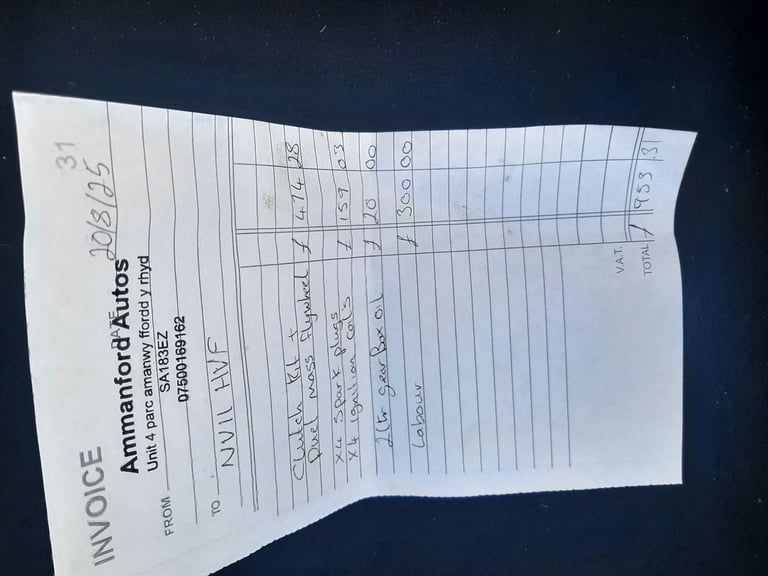 INVOICE 31
DATE 20/8/25
Ammanford Autos
Unit 4 parc amanwy ffordd y rhyd
SA183EZ
FROM
07500169162
TO
NV11 HVF
Clutch Kit +
Duel mass flywheel £ 474 28
X4 Spark plugs
X4 ignition coils £ 159 03
2ltr gear Box oil £ 20 00
Labour £ 300 00
V.A.T.
TOTAL £ 953 31